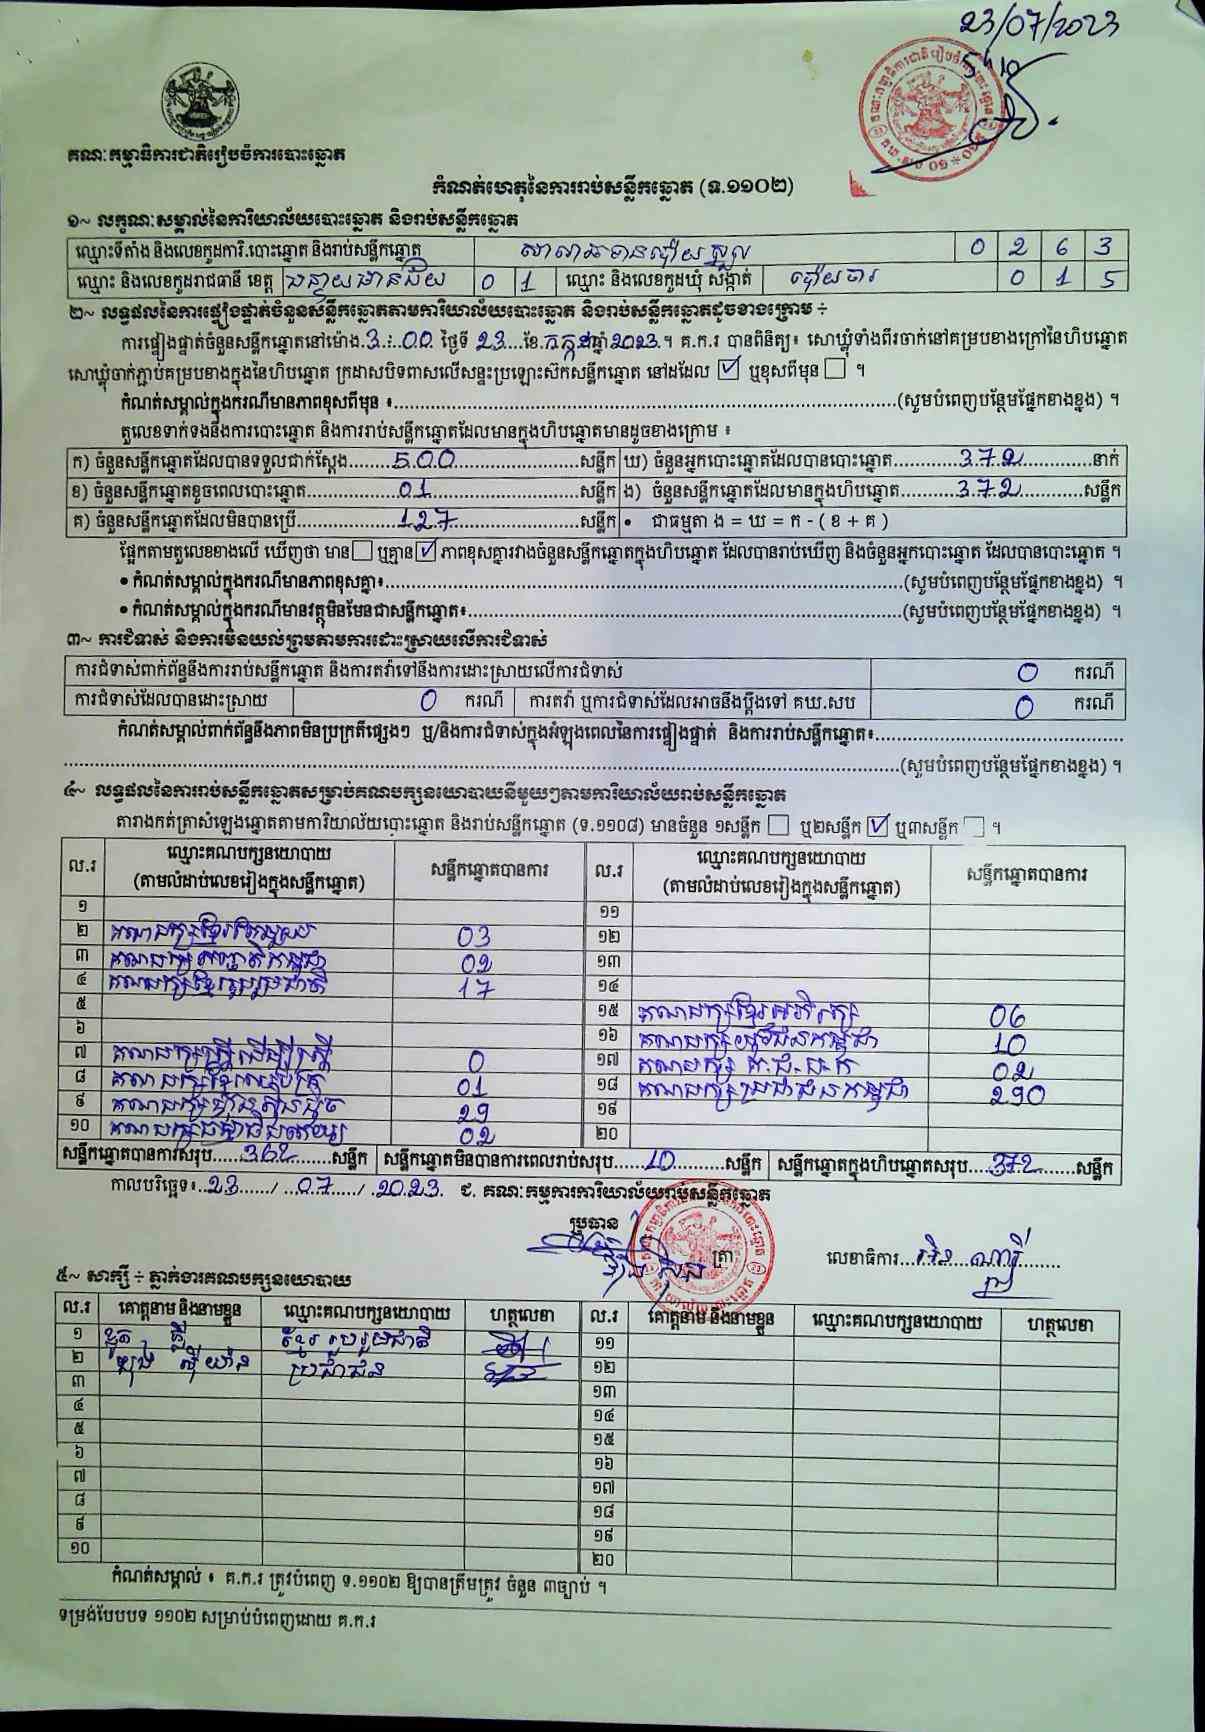 23/07/2023
គណៈកម្មាធិការជាតិរៀបចំការបោះឆ្នោត
កំណត់ហេតុនៃការរាប់សន្លឹកឆ្នោត (ទ.១១០២)
១~ លក្ខណៈសម្គាល់នៃការិយាល័យបោះឆ្នោត និងរាប់សន្លឹកឆ្នោត
ឈ្មោះទីតាំង និងលេខកូដការិ.បោះឆ្នោត និងរាប់សន្លឹកឆ្នោត 0 2 6 3
ឈ្មោះ និងលេខកូដរាជធានី ខេត្ត បន្ទាយមានជ័យ 0 1 ឈ្មោះ និងលេខកូដឃុំ សង្កាត់ ប៉ោយចារ 0 1 5
២~ លទ្ធផលនៃការផ្ទៀងផ្ទាត់ចំនួនសន្លឹកឆ្នោតតាមការិយាល័យបោះឆ្នោត និងរាប់សន្លឹកឆ្នោតដូចខាងក្រោម ÷
ការផ្ទៀងផ្ទាត់ចំនួនសន្លឹកឆ្នោតនៅម៉ោង.3.:.00. ថ្ងៃទី 23...ខែ.កក្កដាឆ្នាំ2023.។ គ.ក.រ បានពិនិត្យ៖ សោឃ្លុំទាំងពីរចាក់នៅគម្របខាងក្រៅនៃហិបឆ្នោត
សោឃ្លុំចាក់ភ្ជាប់គម្របខាងក្នុងនៃហិបឆ្នោត ក្រដាសបិទពាសលើសន្ទះប្រឡោះស៊កសន្លឹកឆ្នោត នៅដដែល ☑ ឬខុសពីមុន ☐ ។
កំណត់សម្គាល់ក្នុងករណីមានភាពខុសពីមុន ៖..........(សូមបំពេញបន្ថែមផ្នែកខាងខ្នង) ។
តួលេខទាក់ទងនឹងការបោះឆ្នោត និងការរាប់សន្លឹកឆ្នោតដែលមានក្នុងហិបឆ្នោតមានដូចខាងក្រោម ៖
ក) ចំនួនសន្លឹកឆ្នោតដែលបានទទួលជាក់ស្តែង........500..........សន្លឹក ឃ) ចំនួនអ្នកបោះឆ្នោតដែលបានបោះឆ្នោត..........372..........នាក់
ខ) ចំនួនសន្លឹកឆ្នោតខូចពេលបោះឆ្នោត..........01..........សន្លឹក ង) ចំនួនសន្លឹកឆ្នោតដែលមានក្នុងហិបឆ្នោត..........372..........សន្លឹក
គ) ចំនួនសន្លឹកឆ្នោតដែលមិនបានប្រើ..........127..........សន្លឹក • ជាធម្មតា ង = ឃ = ក - ( ខ + គ )
ផ្អែកតាមតួលេខខាងលើ ឃើញថា មាន ☐ ឬគ្មាន ☑ ភាពខុសគ្នារវាងចំនួនសន្លឹកឆ្នោតក្នុងហិបឆ្នោត ដែលបានរាប់ឃើញ និងចំនួនអ្នកបោះឆ្នោត ដែលបានបោះឆ្នោត ។
• កំណត់សម្គាល់ក្នុងករណីមានភាពខុសគ្នា៖..........(សូមបំពេញបន្ថែមផ្នែកខាងខ្នង) ។
• កំណត់សម្គាល់ក្នុងករណីមានវត្ថុមិនមែនជាសន្លឹកឆ្នោត៖..........(សូមបំពេញបន្ថែមផ្នែកខាងខ្នង) ។
៣~ ការជំទាស់ និងការមិនយល់ព្រមតាមការដោះស្រាយលើការជំទាស់
ការជំទាស់ពាក់ព័ន្ធនឹងការរាប់សន្លឹកឆ្នោត និងការតវ៉ាទៅនឹងការដោះស្រាយលើការជំទាស់ 0 ករណី
ការជំទាស់ដែលបានដោះស្រាយ 0 ករណី ការតវ៉ា ឬការជំទាស់ដែលអាចនឹងប្តឹងទៅ គឃ.សប 0 ករណី
កំណត់សម្គាល់ពាក់ព័ន្ធនឹងភាពមិនប្រក្រតីផ្សេងៗ ឬ/និងការជំទាស់ក្នុងអំឡុងពេលនៃការផ្ទៀងផ្ទាត់ និងការរាប់សន្លឹកឆ្នោត៖..........
..........(សូមបំពេញបន្ថែមផ្នែកខាងខ្នង) ។
៤~ លទ្ធផលនៃការរាប់សន្លឹកឆ្នោតសម្រាប់គណបក្សនយោបាយនីមួយៗតាមការិយាល័យរាប់សន្លឹកឆ្នោត
តារាងកត់ត្រាសំឡេងឆ្នោតតាមការិយាល័យបោះឆ្នោត និងរាប់សន្លឹកឆ្នោត (ទ.១១០៨) មានចំនួន ១សន្លឹក ☐ ឬ២សន្លឹក ☑ ឬ៣សន្លឹក ☐ ។
ល.រ ឈ្មោះគណបក្សនយោបាយ (តាមលំដាប់លេខរៀងក្នុងសន្លឹកឆ្នោត) សន្លឹកឆ្នោតបានការ ល.រ ឈ្មោះគណបក្សនយោបាយ (តាមលំដាប់លេខរៀងក្នុងសន្លឹកឆ្នោត) សន្លឹកឆ្នោតបានការ
១ ១១
២ 03 ១២
៣ គណបក្សសញ្ជាតិកម្ពុជា 02 ១៣
៤ គណបក្សខ្មែររួបរួមជាតិ 17 ១៤
៥ ១៥ គណបក្សខ្មែរអភិរក្ស 06
៦ ១៦ គណបក្សយុវជនកម្ពុជា 10
៧ គណបក្សស្ត្រីដើម្បីស្ត្រី 0 ១៧ គណបក្ស 02
៨ 01 ១៨ គណបក្សប្រជាជនកម្ពុជា 290
៩ គណបក្សហ្វ៊ុនស៊ិនប៉ិច 29 ១៩
១០ គណបក្សធម្មាធិបតេយ្យ 02 ២០
សន្លឹកឆ្នោតបានការសរុប.....362.........សន្លឹក សន្លឹកឆ្នោតមិនបានការពេលរាប់សរុប......10..........សន្លឹក សន្លឹកឆ្នោតក្នុងហិបឆ្នោតសរុប....372........សន្លឹក
កាលបរិច្ឆេទ៖..23....../...07...../ .2023. ជ. គណៈកម្មការការិយាល័យរាប់សន្លឹកឆ្នោត
ប្រធាន
ត្រា
លេខាធិការ..........
៥~ សាក្សី ÷ ភ្នាក់ងារគណបក្សនយោបាយ
ល.រ គោត្តនាម និងនាមខ្លួន ឈ្មោះគណបក្សនយោបាយ ហត្ថលេខា ល.រ គោត្តនាម និងនាមខ្លួន ឈ្មោះគណបក្សនយោបាយ ហត្ថលេខា
១ ខ្មែររួបរួមជាតិ ១១
២ ប្រជាជន ១២
៣ ១៣
៤ ១៤
៥ ១៥
៦ ១៦
៧ ១៧
៨ ១៨
៩ ១៩
១០ ២០
កំណត់សម្គាល់ ៖ គ.ក.រ ត្រូវបំពេញ ទ.១១០២ ឱ្យបានត្រឹមត្រូវ ចំនួន ៣ច្បាប់ ។
ទម្រង់បែបបទ ១១០២ សម្រាប់បំពេញដោយ គ.ក.រ